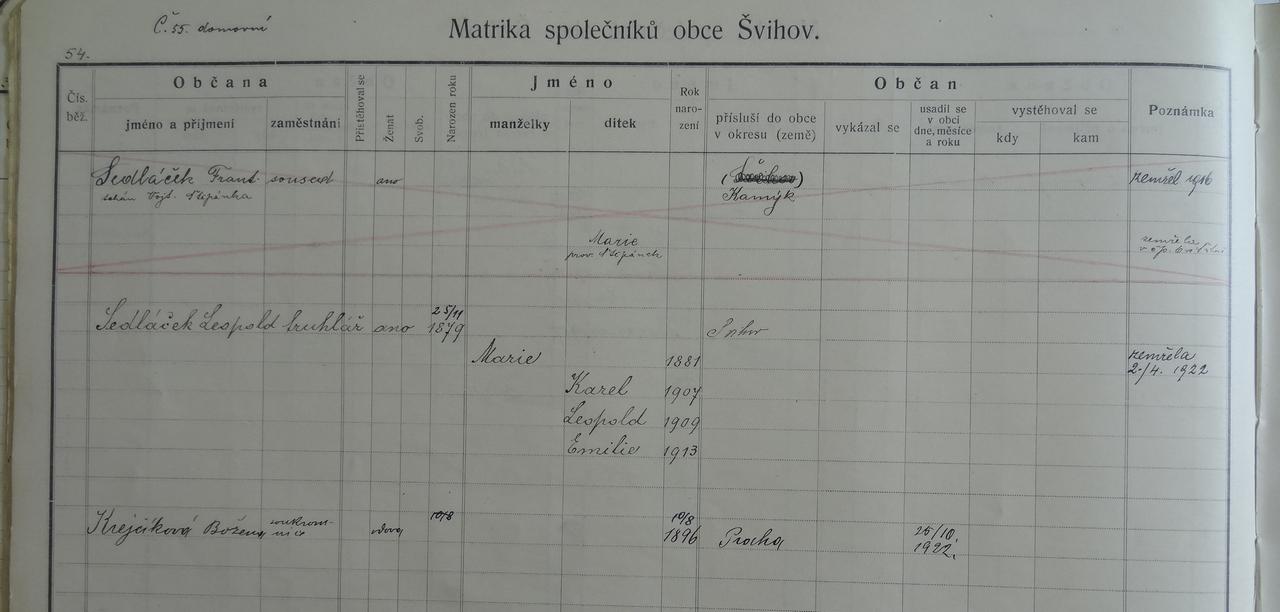 Č. 55. domovní
Matrika společníků obce Švihov.
54.
Čís. běž.
Občana
jméno a příjmení
zaměstnání
Přistěhoval se
Ženat
Svob.
Narozen roku
Jméno
manželky
dítek
Rok naro- zení
Občan
přísluší do obce v okresu (země)
vykázal se
usadil se v obci dne, měsíce a roku
vystěhoval se
kdy
kam
Poznámka
Sedláček Frant. soused ano zemřel 1916
Vojt. Štěpánka Kamýk
Marie zemřela
prov. Štěpánek
25/11
Sedláček Leopold truhlář ano 1879
Marie 1881 zemřela
2./4. 1922
Karel 1907
Leopold 1909
Emilie 1913
Krejčíková Božena soukrom- nice vdova 10/8 10/8
1896 Praha 25/10.
1922.